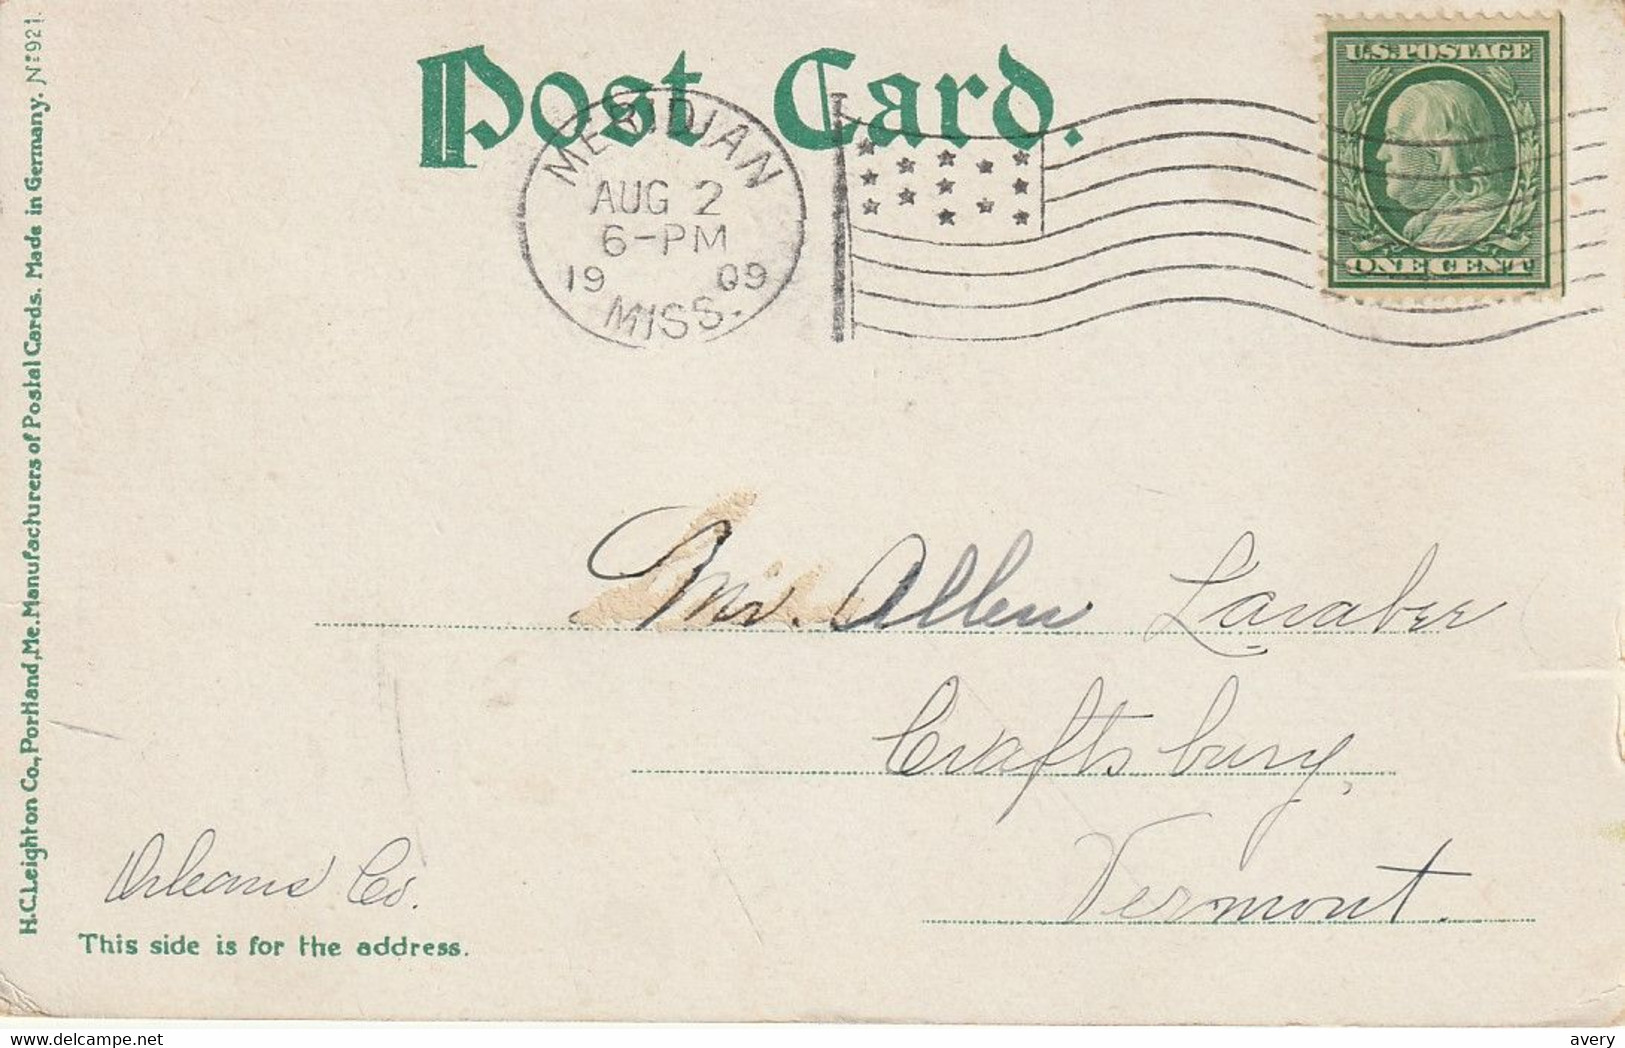 Post Card.
U.S. POSTAGE
ONE CENT
MERIDIAN
AUG 2
6-PM
1909
MISS.
Mr. Allen Laraber
Craftsbury,
Vermont.
Orleans Co.
This side is for the address.
H.C.Leighton Co., Portland, Me. Manufacturers of Postal Cards. Made in Germany. No 921.
www.delcampe.net
avery